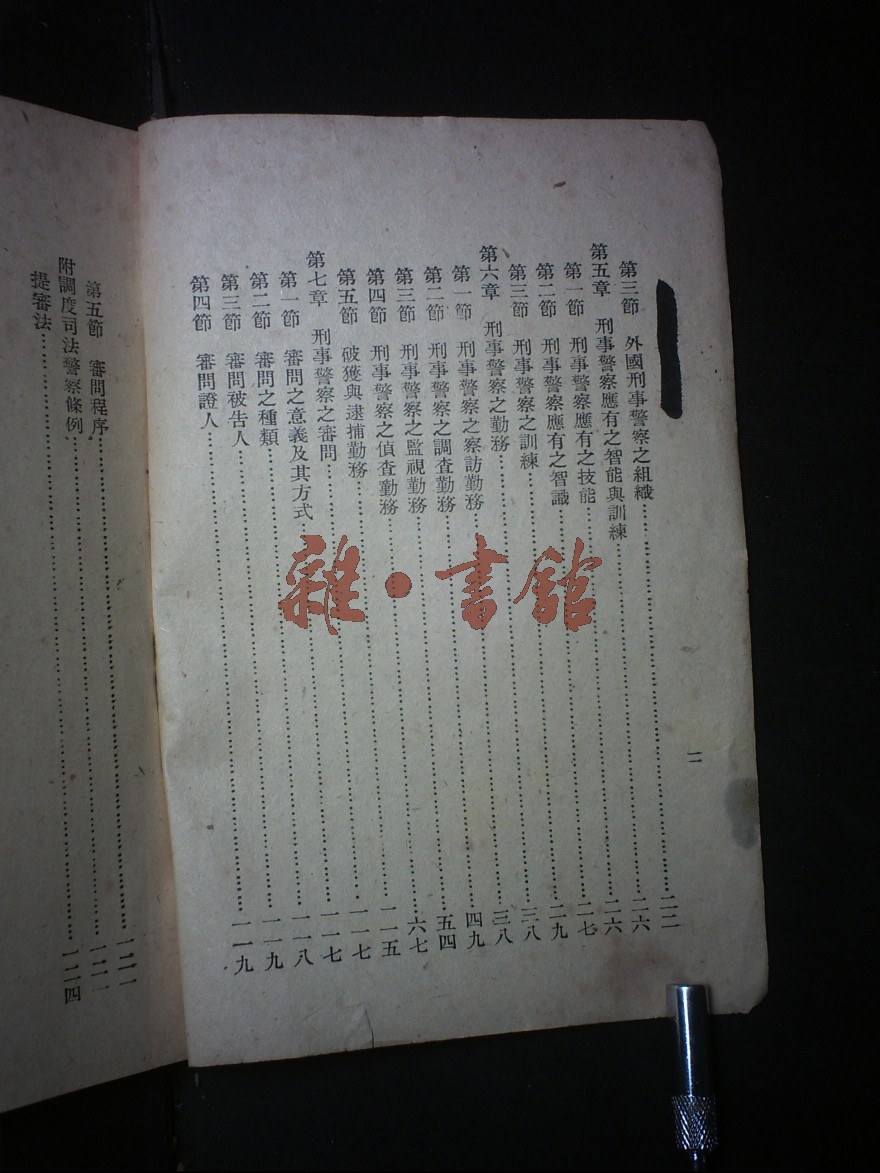 二
第三節 外國刑事警察之組織……二二
第五章 刑事警察應有之智能與訓練……二六
第一節 刑事警察應有之技能……二六
第二節 刑事警察應有之智識……二七
第三節 刑事警察之訓練……二九
第六章 刑事警察之勤務……三八
第一節 刑事警察之察訪勤務……三八
第二節 刑事警察之調查勤務……四九
第三節 刑事警察之監視勤務……五四
第四節 刑事警察之偵查勤務……六七
第五節 破獲與逮捕勤務……一一五
第七章 刑事警察之審問……一一七
第一節 審問之意義及其方式……一一七
第二節 審問之種類……一一八
第三節 審問被告人……一一九
第四節 審問證人……一一九
第五節 審問程序……一二一
附調度司法警察條例……一二一
提審法……一二四
雜·書館